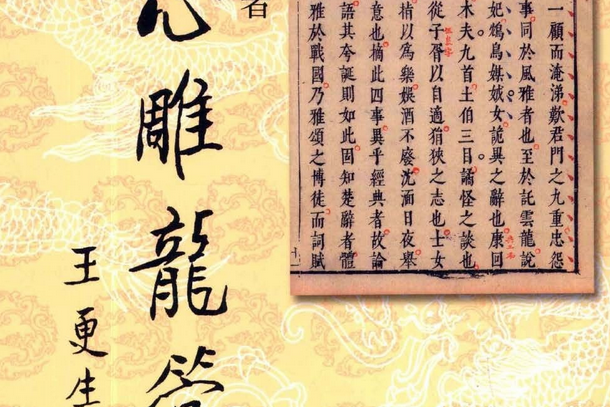 一顧而淹涕歎君門之九重忠怨
事同於風雅者也至於託雲龍說
妃鴆鳥媒娀女詭異之辭也康回
木夫九首土伯三目譎怪之談也
從子胥以自適狷狹之志也士女
指以為樂娛酒不廢沈湎日夜舉
意也摘此四事異乎經典者故論
語其夸誕則如此固知楚辭者體
雅於戰國乃雅頌之博徒而詞賦
者
心雕龍管
王更生